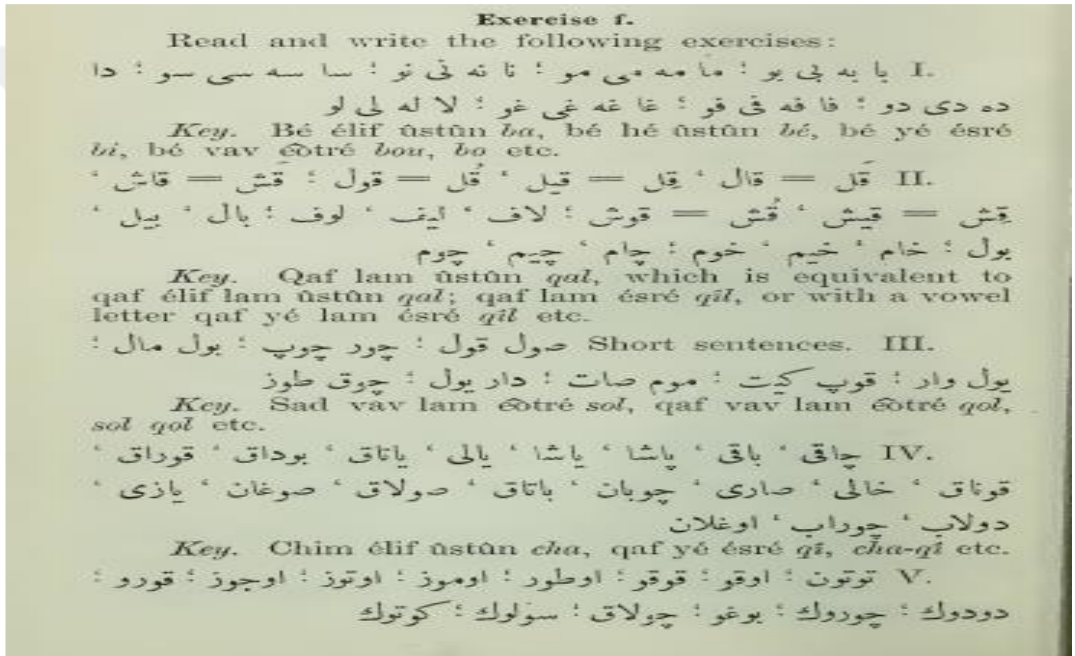 Exercise f.
Read and write the following exercises:
I. با به بی بو ؛ ما مه می مو ؛ نا نه نی نو ؛ سا سه سی سو ؛ دا
ده دی دو ؛ فا فه فی فو ؛ غا غه غی غو ؛ لا له لی لو
Key. Bé élif ûstûn ba, bé hé ûstûn bé, bé yé ésré
bi, bé vav êotré bou, bo etc.
II. قَل = قال ، قِل = قیل ، قُل = قول ؛ قَش = قاش ،
قِش = قیش ، قُش = قوش ؛ لاف ، لیف ، لوف ؛ بال ، بیل ،
بول ؛ خام ، خیم ، خوم ؛ چام ، چیم ، چوم
Key. Qaf lam ûstûn qal, which is equivalent to
qaf élif lam ûstûn qal; qaf lam ésré qîl, or with a vowel
letter qaf yé lam ésré qîl etc.
III. Short sentences. صول قول ؛ چور چوپ ؛ بول مال ؛
یول وار ؛ قوپ کیت ؛ موم صات ؛ دار یول ؛ چوق طوز
Key. Sad vav lam êotré sol, qaf vav lam êotré qol,
sol qol etc.
IV. چاقی ، باقی ، پاشا ، یاشا ، یالی ، یاتاق ، بوداق ، قوراق ،
قوناق ، خالی ، صاری ، چوبان ، باتاق ، صولاق ، صوغان ، یازی ،
دولاب ، چوراب ، اوغلان
Key. Chim élif ûstûn cha, qaf yé ésré qî, cha-qî etc.
V. توتون ؛ اوقو ؛ قوقو ؛ اوطور ؛ اوموز ؛ اوتوز ؛ اوجوز ؛ قورو ؛
دودوك ؛ چوروك ؛ بوغو ؛ چولاق ؛ سولوك ؛ كوتوك